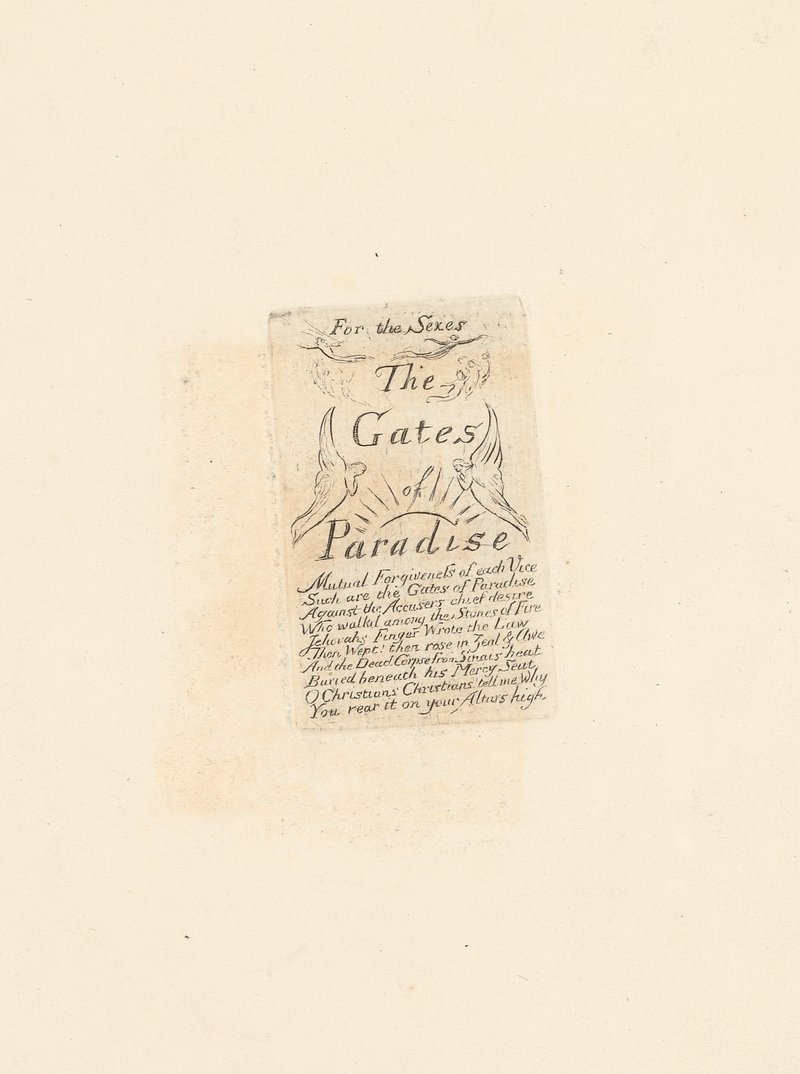 For the Sexes
The
Gates
of
Paradise
Mutual Forgiveness of each Vice
Such are the Gates of Paradise
Against the Accusers chief desire
Who walkd among the Stones of Fire
Jehovahs Finger Wrote the Law
Then Wept! then rose in Zeal & Awe
And the Dead Corpse from Sinais heat
Buried beneath his Mercy Seat
O Christians Christians tell me Why
You rear it on your Altars high